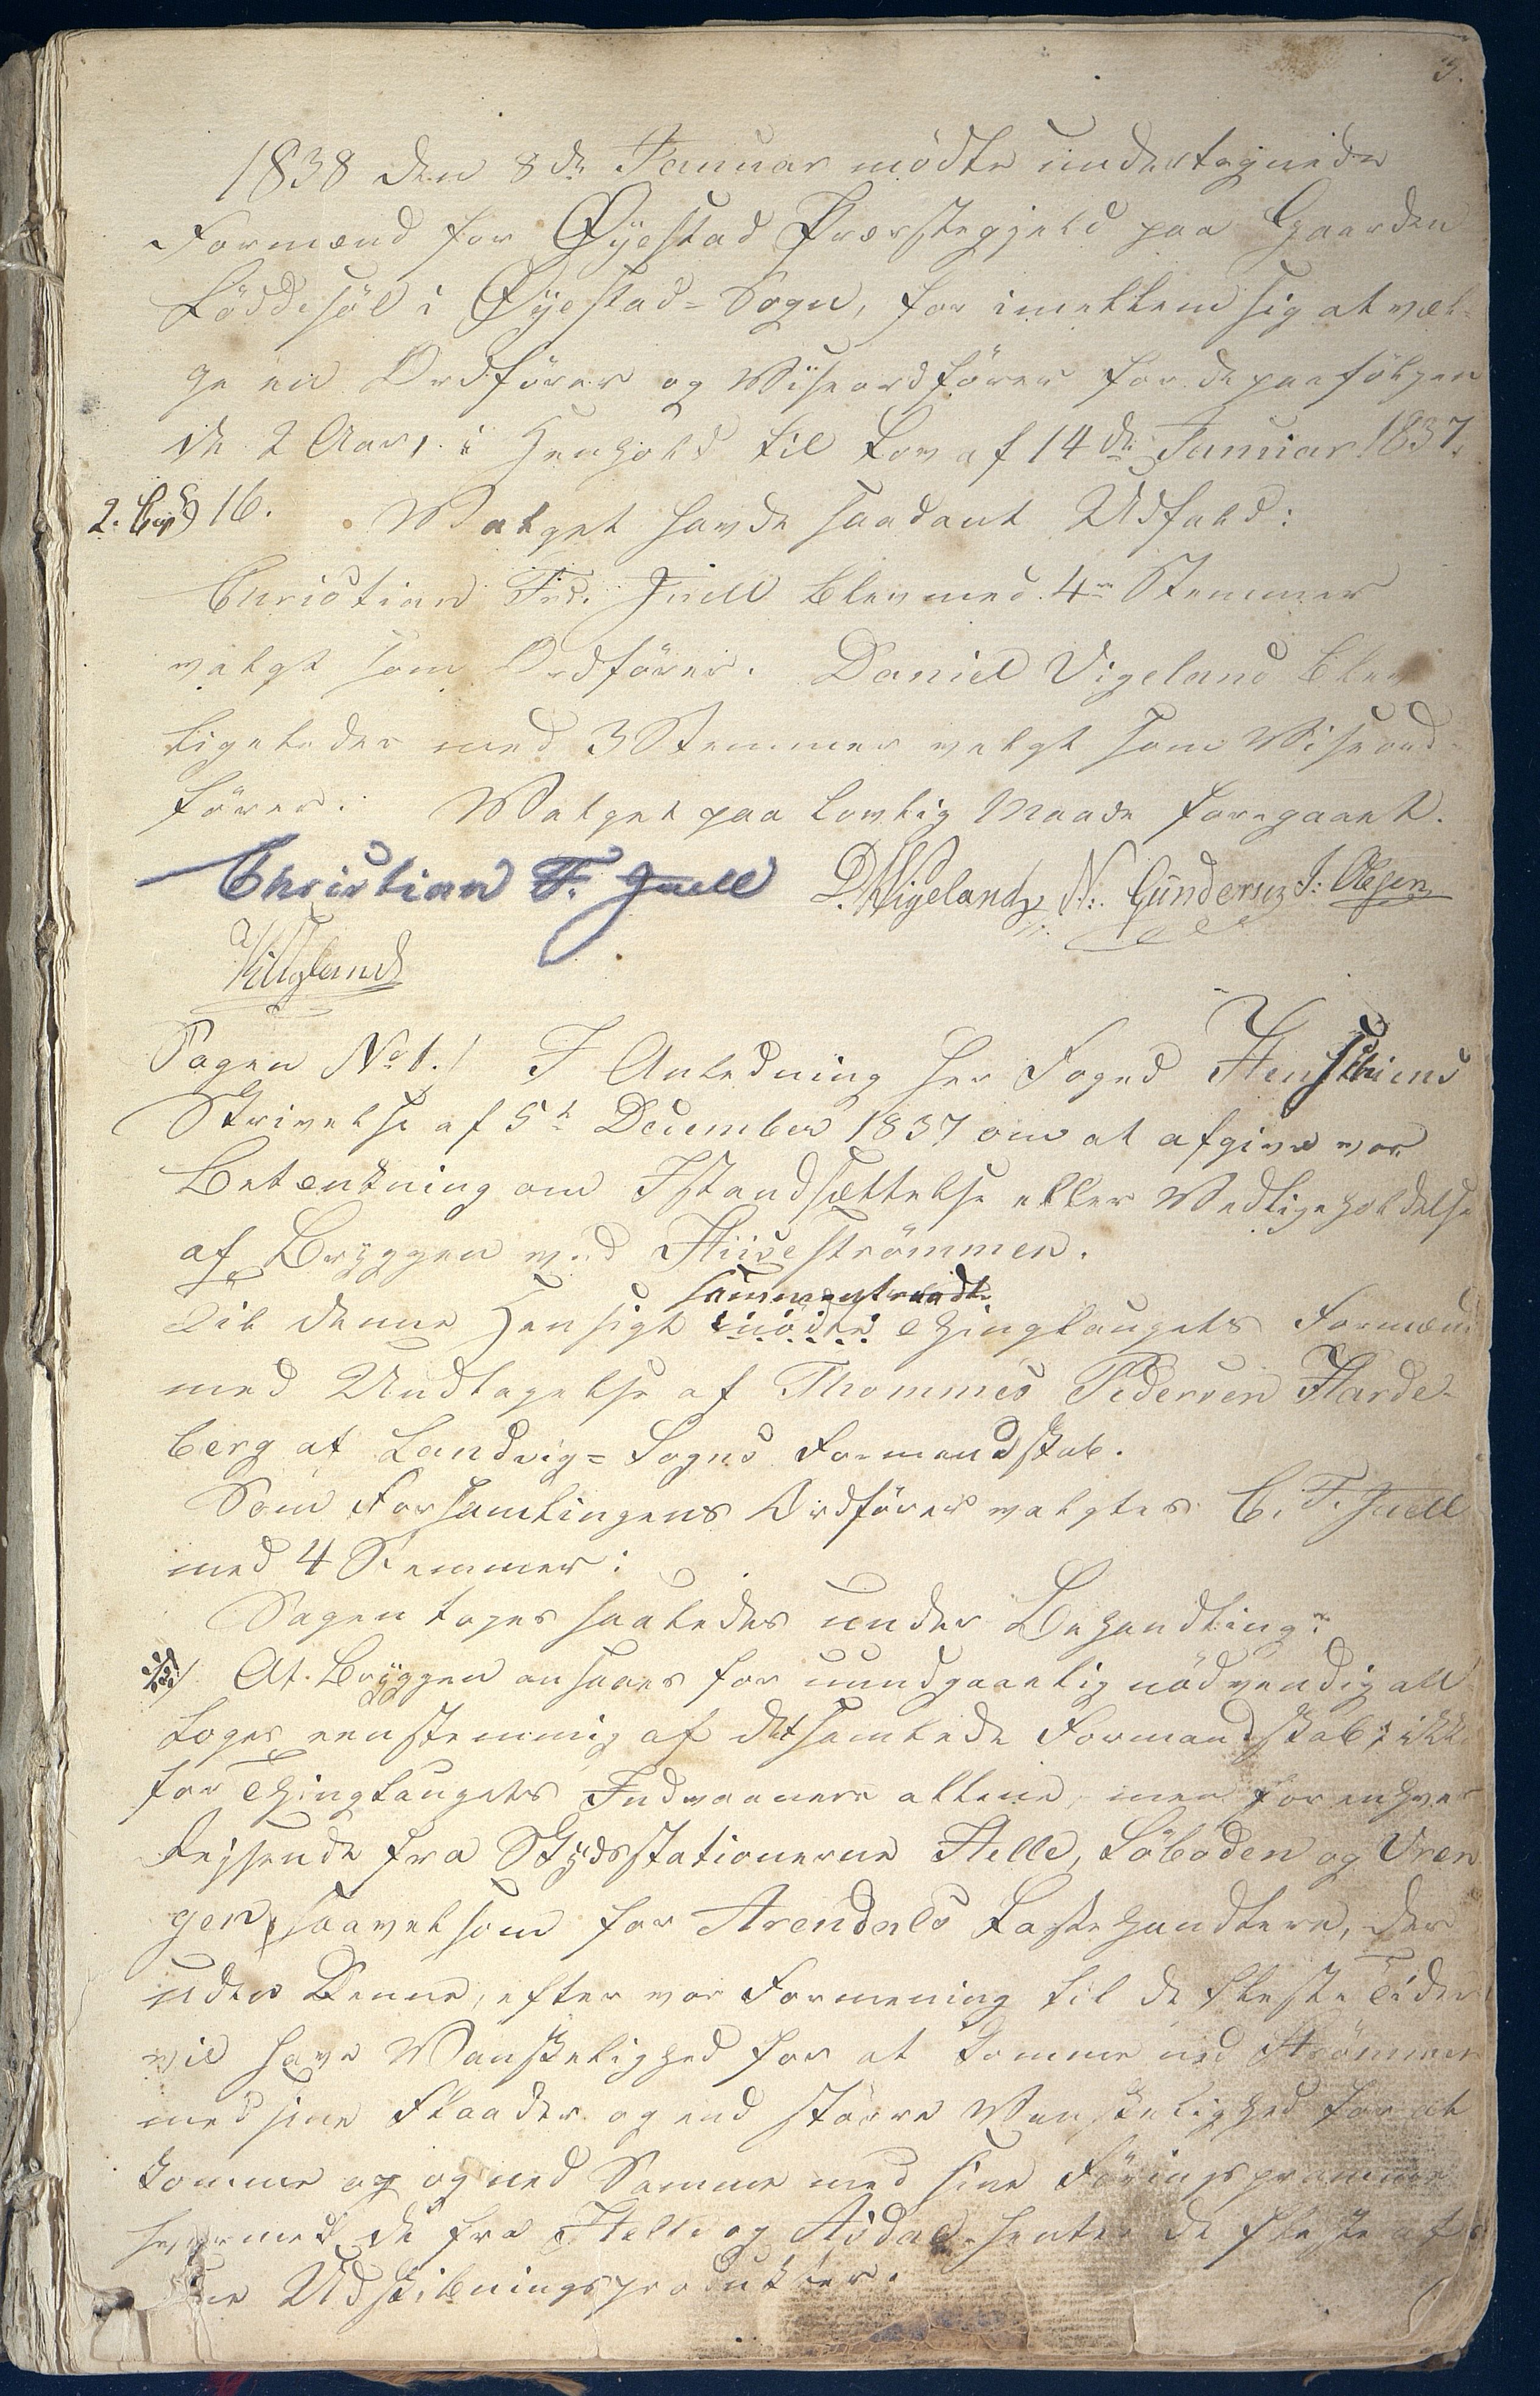 3.
1838 den 8de Januar mödte undertegnede
Formænd for Øÿestad Præstegjeld paa Gaarden
Löddesöl i Øÿestad-Sogn, for imellem sig at væl-
ge en Ordförer og Viseordförer for de paafölgen
de 2 Aar, i Henhold til Lov af 14de Januar 1837.
2. Cap § 16. Valget havde saadant Udfald:
Christian Frd. Juell blev med 4re Stemmer
valgt som Ordförer. Daniel Vigeland blev
ligeledes med 3 Stemmer valgt som Viseord-
förer. Valget paa lovlig Maade foregaaet.
Christian F. Juell D. Wigeland N. Gundersen J: Olsen
Sagen No 1./ I Anledning Her Foged
Skrivelse af 5t December 1837 om at afgive vor
Betænkning om Istandsættelse eller Vedligeholdelse
af Bryggen ved Hiiseströmmen.
sammentraadte
Til denne Hensigt mödte Thinglaugets Formænd
med Undtagelse af Thommes Pedersen Harde-
berg af Landvig= Sogns Formandskab.
Som Forsamlingens Ordförer valgtes C. F. Juell
med 4 Stemmer:
Sagen toges saaledes under Behandling:
At Bryggen ansaaes for uundgaaelig nödvendig
toges eenstemmig af det samlede Formandskab; ikke
for Thinglaugets Indvaanere allene, men for enhver
Rejsende fra Skydsstationerne Helle, Löboden og Vren
gen, saavelsom for Arendals Lastehandlere, der
uden Denne, efter vor Formening til de fleste Tider
vil have Vanskelighed for at komme ned Strömmen
med sine Flaader og end större Vanskelighed for at
komme op og ned Samme med sine Föringspramme
hvormed de fra Helle og Aisdal henter de fleste af
sine Udskibningsprodukter.